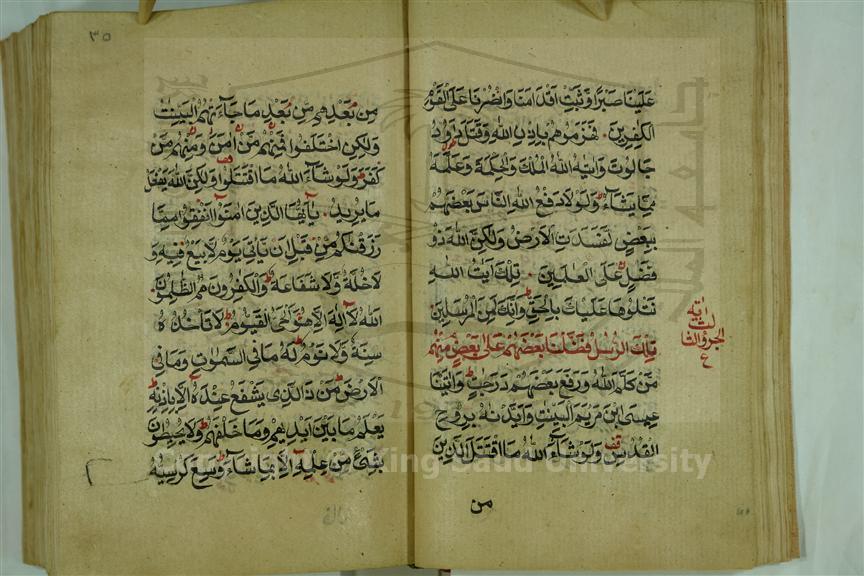 علينا صبرا وثبت اقدامنا وانصرنا على القوم
الكفرين فهزموهم باذن الله وقتل داود
جالوت واتيه الله الملك والحكمة وعلمه
مما يشاء ولولا دفع الله الناس بعضهم
ببعض لفسدت الارض ولكن الله ذو
فضل على العلمين تلك ايت الله
نتلوها عليك بالحق وانك لمن المرسلين
تلك الرسل فضلنا بعضهم على بعض منهم
من كلم الله ورفع بعضهم درجت واتينا
عيسى ابن مريم البينت وايدنه بروح
القدس ولو شاء الله ما اقتتل الذين
من
الجزو الثالث
٣٥
من بعدهم من بعد ما جاءتهم البينت
ولكن اختلفوا فمنهم من امن ومنهم من
كفر ولو شاء الله ما اقتتلوا ولكن الله يفعل
ما يريد يايها الذين امنوا انفقوا مما
رزقنكم من قبل ان ياتي يوم لا بيع فيه و
لا خلة ولا شفاعة والكفرون هم الظلمون
الله لا اله الا هو الحي القيوم لا تاخذه
سنة ولا نوم له ما في السموت وما في
الارض من ذا الذي يشفع عنده الا باذنه
يعلم ما بين ايديهم وما خلفهم ولا يحيطون
بشئ من علمه الا بما شاء وسع كرسيه
King Saud University